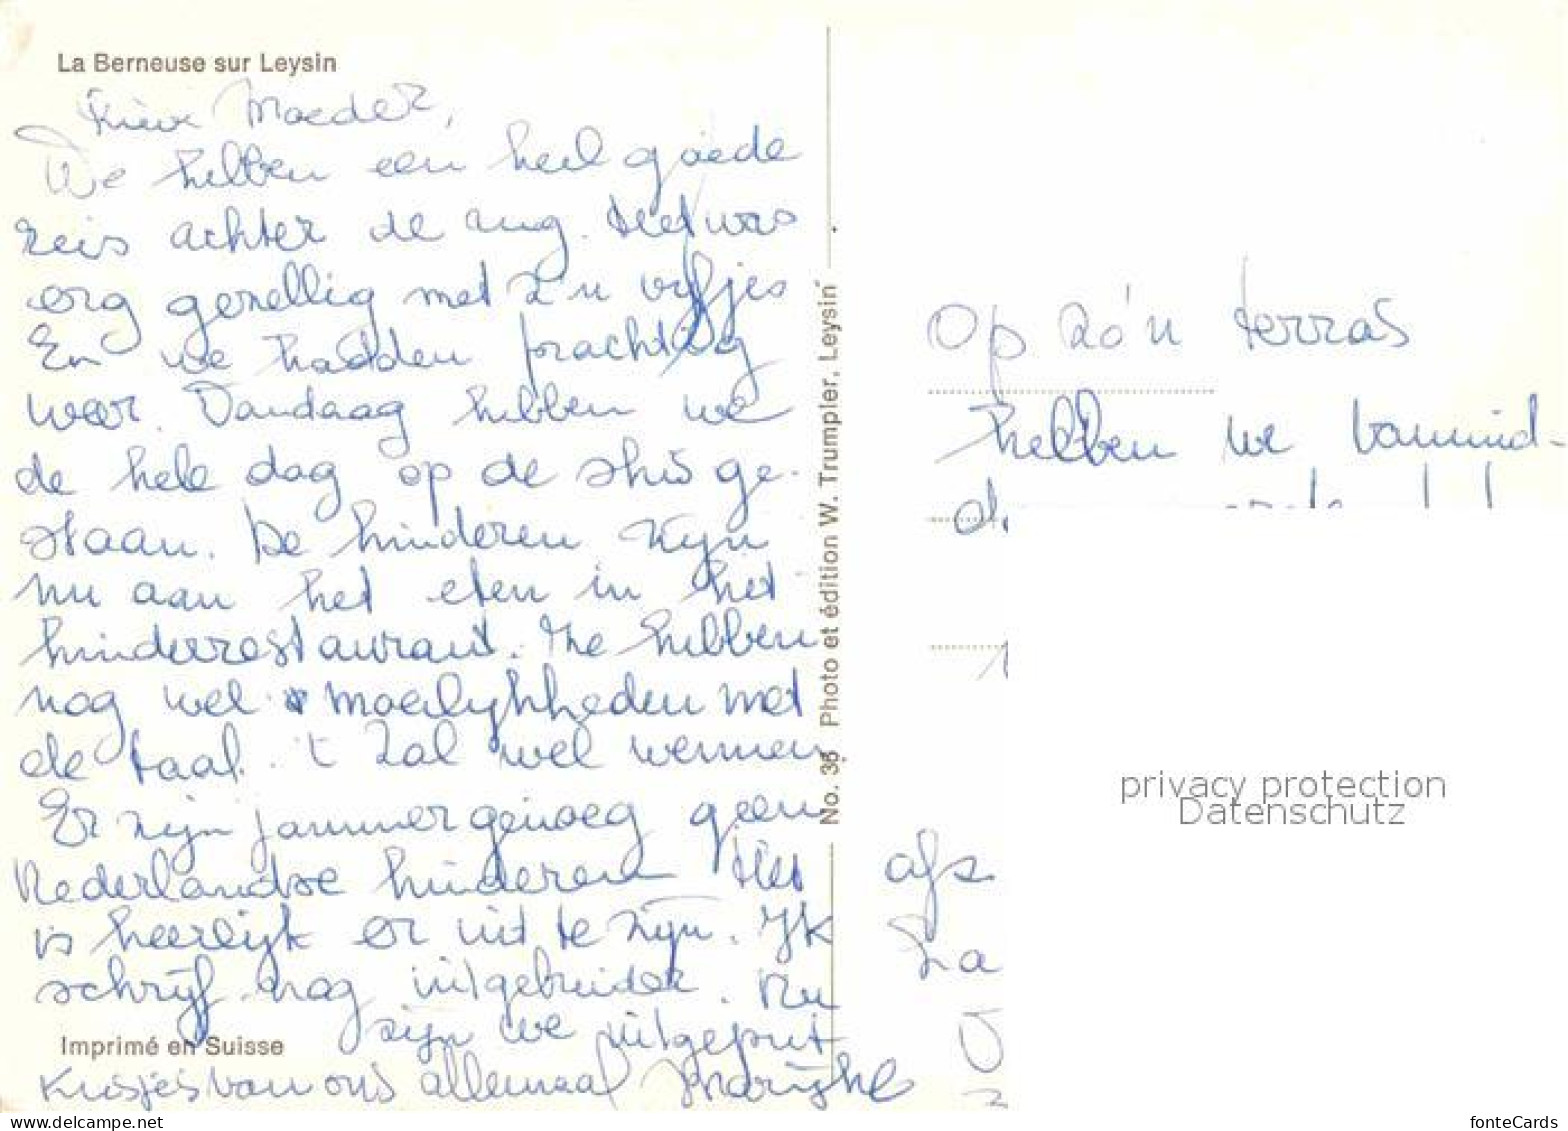 La Berneuse sur Leysin
Lieve Moeder,
We hebben een heel goede
reis achter de rug. Het was
erg gezellig met z'n vijfjes
En we hadden prachtig
weer. Vandaag hebben we
de hele dag op de ski's ge-
staan. De kinderen zijn
nu aan het eten in het
kinderrestaurant. Ze hebben
nog wel moeilijkheden met
de taal. 't Zal wel wennen
Er zijn jammer genoeg geen
Nederlandse kinderen Het
is heerlijk er uit te zijn. Ik
schrijf nog uitgebreider. Nu
zijn we uitgeput
Imprimé en Suisse
Kusjes van ons allemaal
No. 36 Photo et édition W. Trumpler, Leysin
Op zo'n terras
hebben we vanmid-
privacy protection
Datenschutz
www.delcampe.net
fonteCards